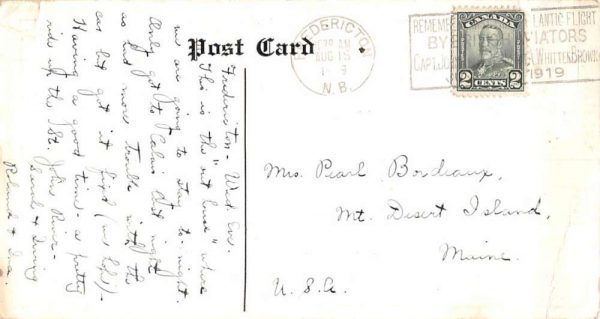 Post Card
FREDERICTON
AUG 15
N.B.
LANTIC FLIGHT
BY
CAPT. JO
WHITTEN BROWN
1919
CANADA
2 CENTS 2
Fredericton - Wed. Eve.
This is the "out house" where
we are going to stay to-night.
Only got to Calais last night
as had more trouble with the
car but got it fixed (we hope) -
Having a good time - a pretty
ride up the St. John River -
Roland & Ina.
Mrs. Pearl Bordeaux,
Mt. Desert Island,
Maine.
U.S.A.